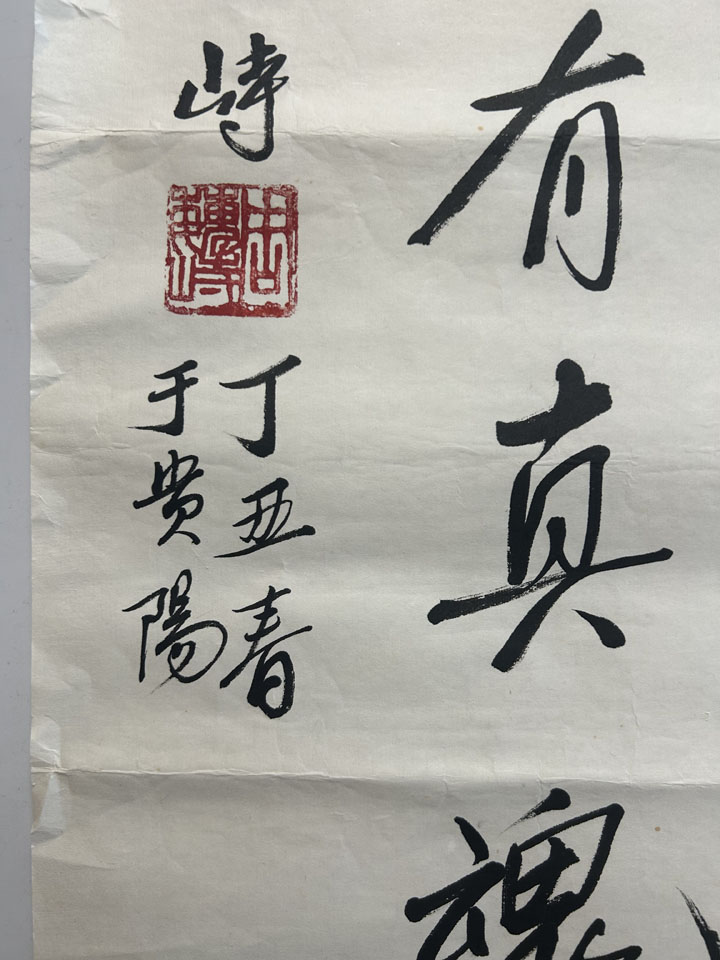 有真魂
峙
丁丑春
于貴陽